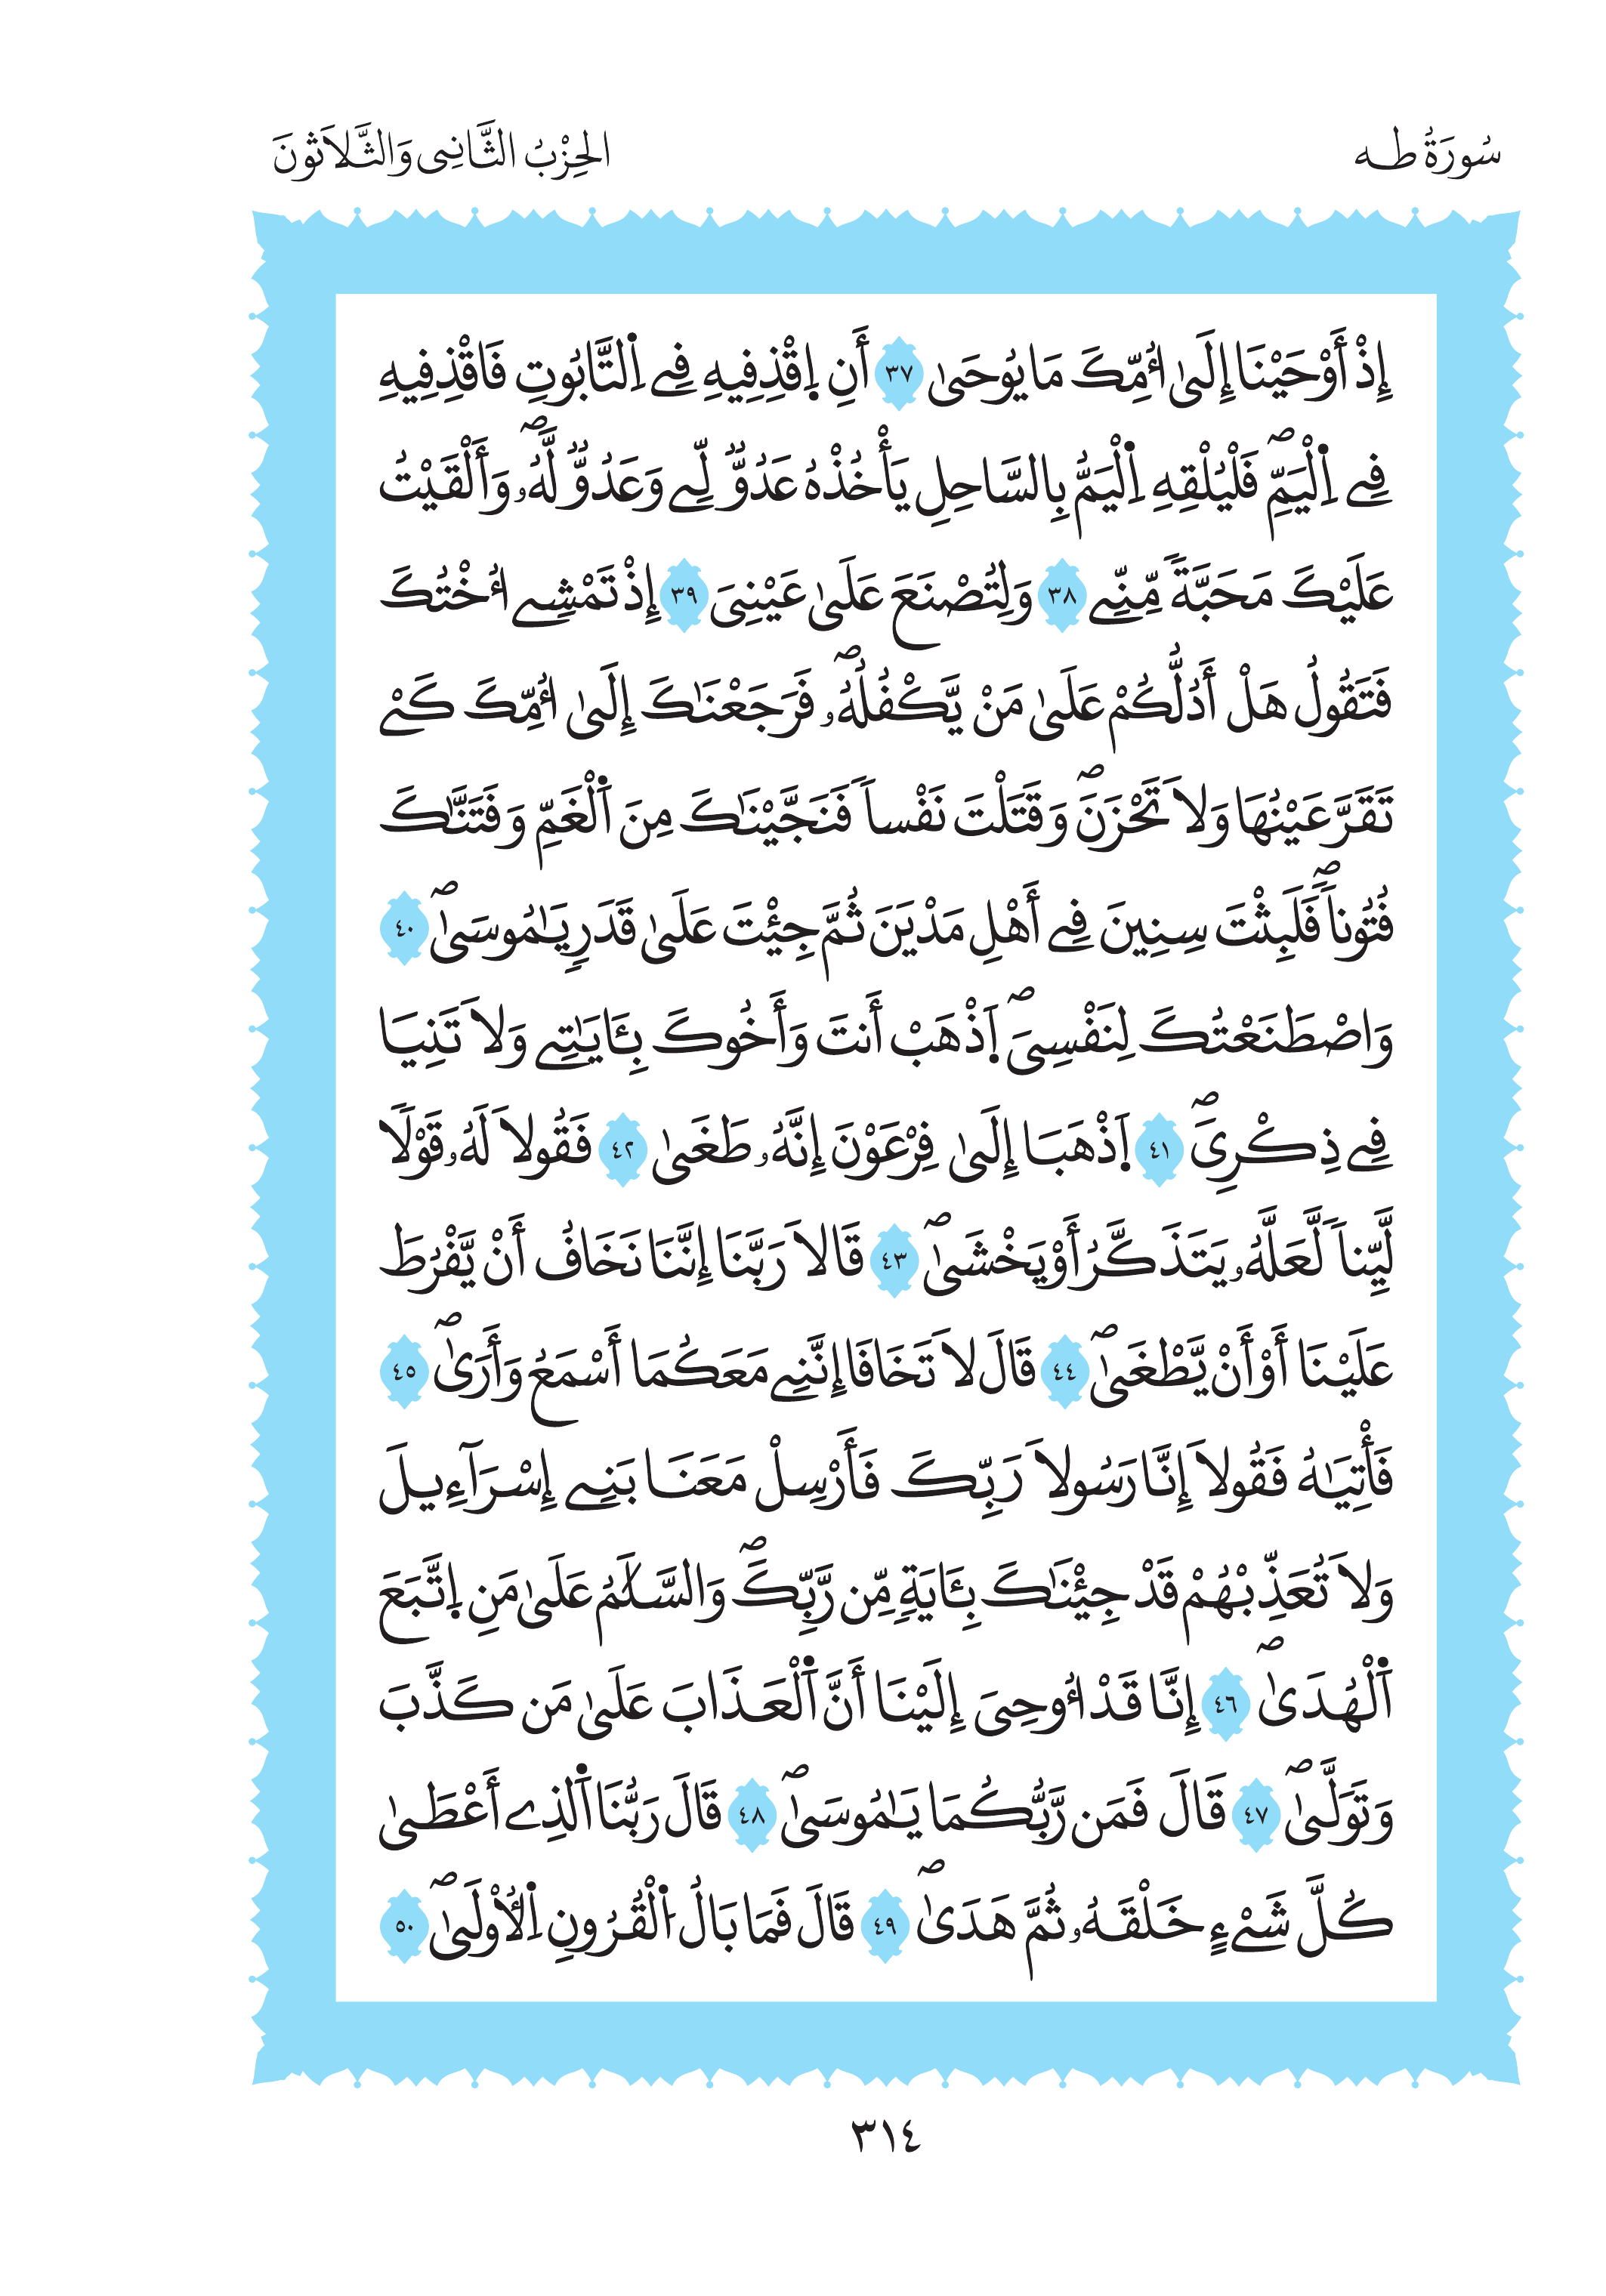 سُورَةُ طـه
الحِزْبُ الثَّانِى وَالثَّلَاثُونَ
إِذْ أَوْحَيْنَا إِلَىٰ أُمِّكَ مَا يُوحَىٰ ٣٧ أَنِ اِ۪قْذِفِيهِ فِے اِ۬لتَّابُوتِ فَاقْذِفِيهِ
فِے اِ۬لْيَمِّۖ فَلْيُلْقِهِ اِ۬لْيَمُّ بِالسَّاحِلِ يَأْخُذْهُ عَدُوّٞ لِّے وَعَدُوّٞ لَّهُۥۖ وَأَلْقَيْتُ
عَلَيْكَ مَحَبَّةٗ مِّنِّے ٣٨ وَلِتُصْنَعَ عَلَىٰ عَيْنِىَ ٣٩ إِذْ تَمْشِے أُخْتُكَ
فَتَقُولُ هَلْ أَدُلُّكُمْ عَلَىٰ مَنْ يَّكْفُلُهُۥۖ فَرَجَعْنَٰكَ إِلَىٰ أُمِّكَ كَےْ
تَقَرَّ عَيْنُهَا وَلَا تَحْزَنَۖ وَقَتَلْتَ نَفْساٗ فَنَجَّيْنَٰكَ مِنَ اَ۬لْغَمِّ وَفَتَنَّٰكَ
فُتُوناٗۖ فَلَبِثْتَ سِنِينَ فِے أَهْلِ مَدْيَنَ ثُمَّ جِئْتَ عَلَىٰ قَدَرٖ يَٰمُوسَىٰۖ ٤٠
وَاصْطَنَعْتُكَ لِنَفْسِىَۖ اَ۪ذْهَبْ أَنتَ وَأَخُوكَ بِـَٔايَٰتِے وَلَا تَنِيَا
فِے ذِكْرِىَۖ ٤١ اَ۪ذْهَبَا إِلَىٰ فِرْعَوْنَ إِنَّهُۥ طَغَىٰ ٤٢ فَقُولَا لَهُۥ قَوْلٗا
لَّيِّناٗ لَّعَلَّهُۥ يَتَذَكَّرُ أَوْ يَخْشَىٰۖ ٤٣ قَالَا رَبَّنَا إِنَّنَا نَخَافُ أَنْ يَّفْرُطَ
عَلَيْنَا أَوْ أَنْ يَّطْغَىٰۖ ٤٤ قَالَ لَا تَخَافَا إِنَّنِے مَعَكُمَا أَسْمَعُ وَأَرَىٰۖ ٤٥
فَأْتِيَٰهُ فَقُولَا إِنَّا رَسُولَا رَبِّكَ فَأَرْسِلْ مَعَنَا بَنِے إِسْرَآءِيلَ
وَلَا تُعَذِّبْهُمْ قَدْ جِئْنَٰكَ بِـَٔايَةٖ مِّن رَّبِّكَۖ وَالسَّلَٰمُ عَلَىٰ مَنِ اِ۪تَّبَعَ
اَ۬لْهُدَىٰۖ ٤٦ إِنَّا قَدْ أُوحِىَ إِلَيْنَا أَنَّ اَ۬لْعَذَابَ عَلَىٰ مَن كَذَّبَ
وَتَوَلَّىٰۖ ٤٧ قَالَ فَمَن رَّبُّكُمَا يَٰمُوسَىٰۖ ٤٨ قَالَ رَبُّنَا اَ۬لَّذِے أَعْطَىٰ
كُلَّ شَےْءٍ خَلْقَهُۥ ثُمَّ هَدَىٰۖ ٤٩ قَالَ فَمَا بَالُ اُ۬لْقُرُونِ اِ۬لْأُولَىٰۖ ٥٠
٣١٤